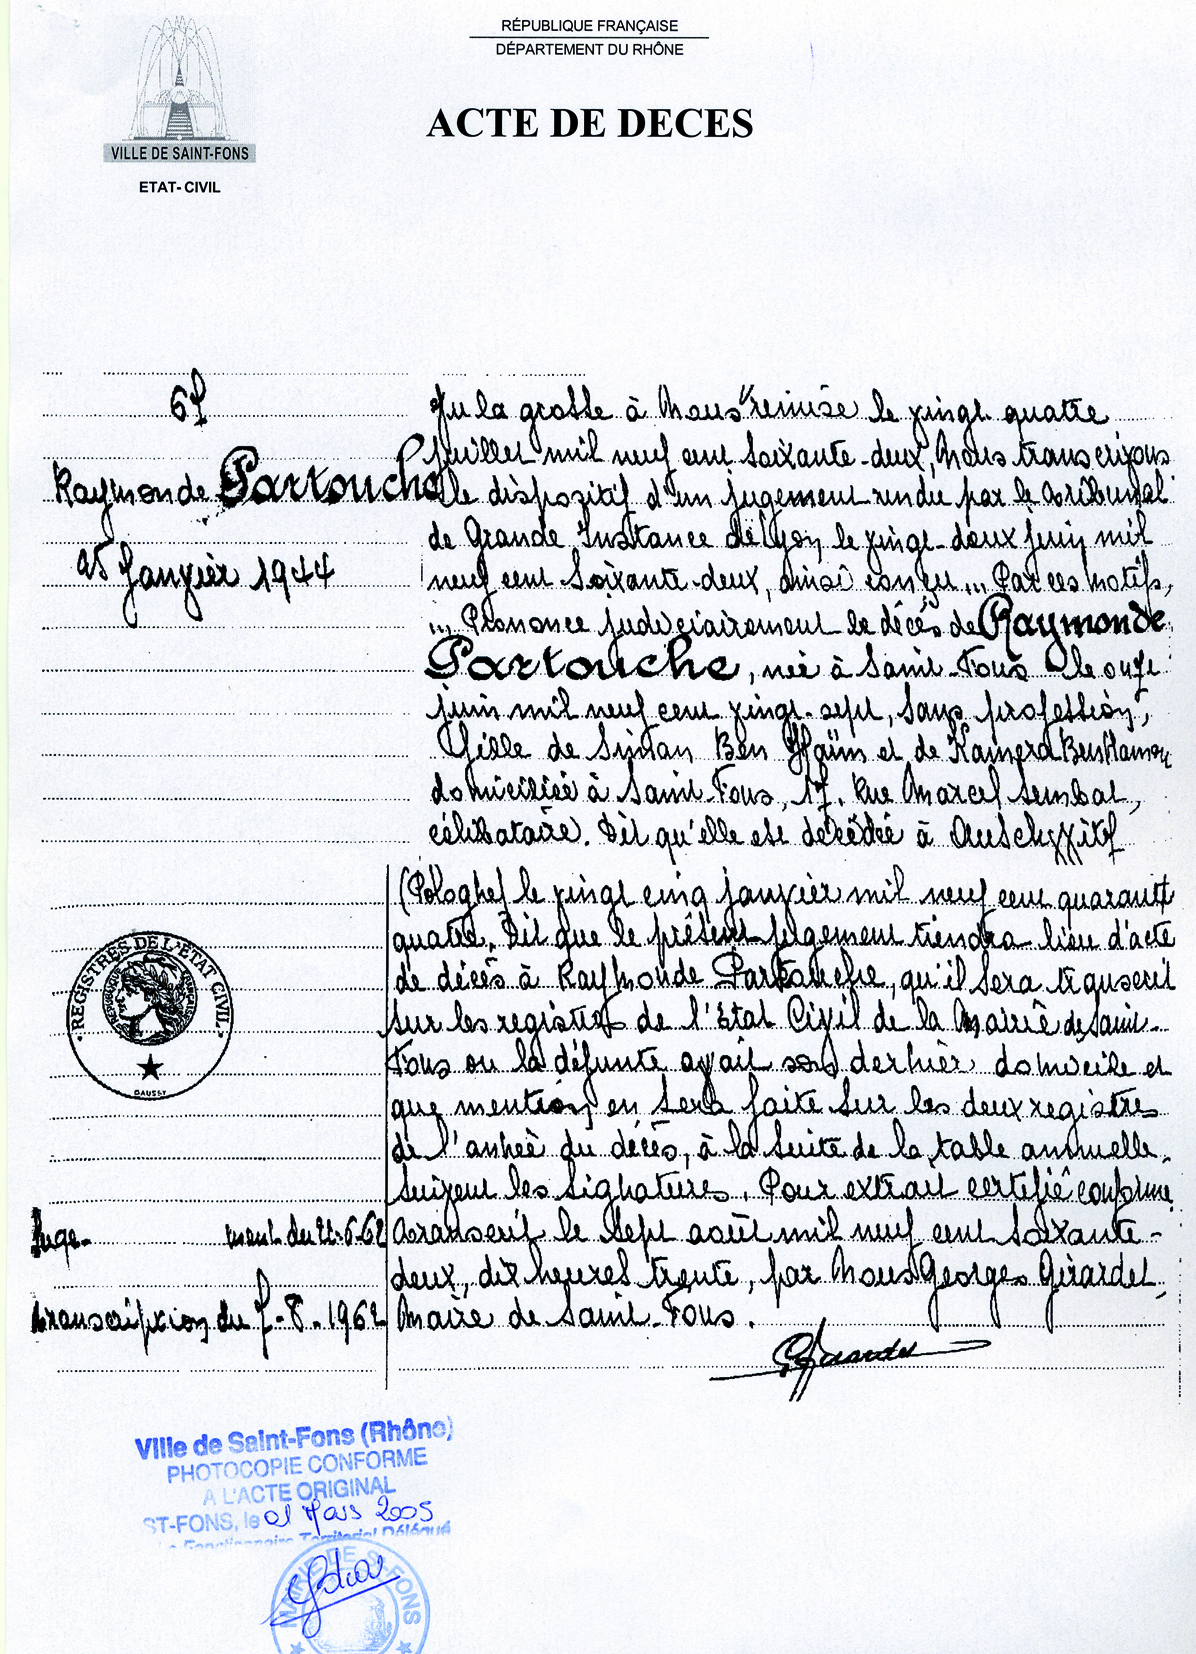 RÉPUBLIQUE FRANÇAISE
DÉPARTEMENT DU RHÔNE
VILLE DE SAINT-FONS
ETAT-CIVIL
ACTE DE DECES
67
Raymonde Partouche
25 Janvier 1944
Vu la grosse à Nous remise le vingt quatre
juillet mil neuf cent soixante-deux, Nous transcrivons
le dispositif d'un jugement rendu par le Tribunal
de Grande Instance de Lyon le vingt-deux juin mil
neuf cent soixante-deux, ainsi conçu ... Par ces motifs,
... Prononce judiciairement le décès de Raymonde
Partouche, née à Saint-Fons le onze
juin mil neuf cent vingt-sept, sans profession,
fille de Simian Ben Haïm et de Kamera Ben Hamou
domiciliée à Saint-Fons, 17, Rue Marcel Sembat,
célibataire. Dit qu'elle est décédée à Auschwitz
(Pologne) le vingt cinq janvier mil neuf cent quarante
quatre. Dit que le présent jugement tiendra lieu d'acte
de décès à Raymonde Partouche, qu'il sera transcrit
sur les registres de l'Etat Civil de la Mairie de Saint-
Fons ou la défunte avait son dernier domicile et
que mention en sera faite sur les deux registres
de l'année du décès, à la suite de la table annuelle.
Suivent les signatures. Pour extrait certifié conforme
Transcrit le sept août mil neuf cent soixante-
deux, dix heures trente, par Nous Georges Girardet,
Maire de Saint-Fons.
REGISTRES DE L'ETAT CIVIL
REPUBLIQUE FRANÇAISE
DAUSSY
Juge- ment du 22-6-62
transcription du 7-8-1962
Girardet
Ville de Saint-Fons (Rhône)
PHOTOCOPIE CONFORME
A L'ACTE ORIGINAL
ST-FONS, le 01 Mars 2005
Le Fonctionnaire Territorial Délégué
MAIRIE DE ST-FONS